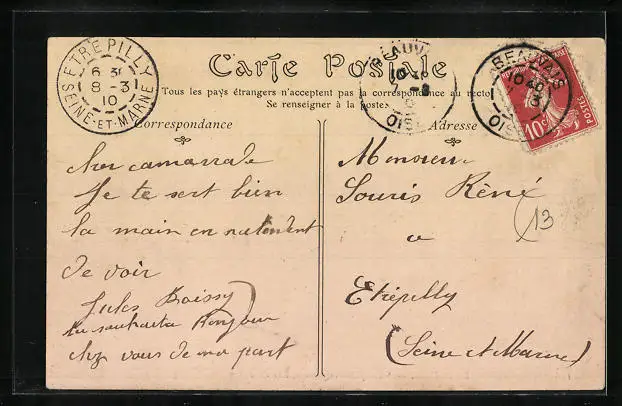 Carte Postale
Tous les pays étrangers n'acceptent pas la correspondance au recto
Se renseigner à la poste
Correspondance
Adresse
ETREPILLY
6 30
8 - 3
10
SEINE-ET-MARNE
BEAUVAIS
10
OISE
BEAUVAIS
10 40
OISE
10c
POSTES
cher camarrade
Je te sert bien
la main en natendent
de voir
Jules Boissy
tu souhaita Bonjour
chez vous de ma part
Monsieur
Souris Réné
13
a
Etrépilly
(Seine et Marne)